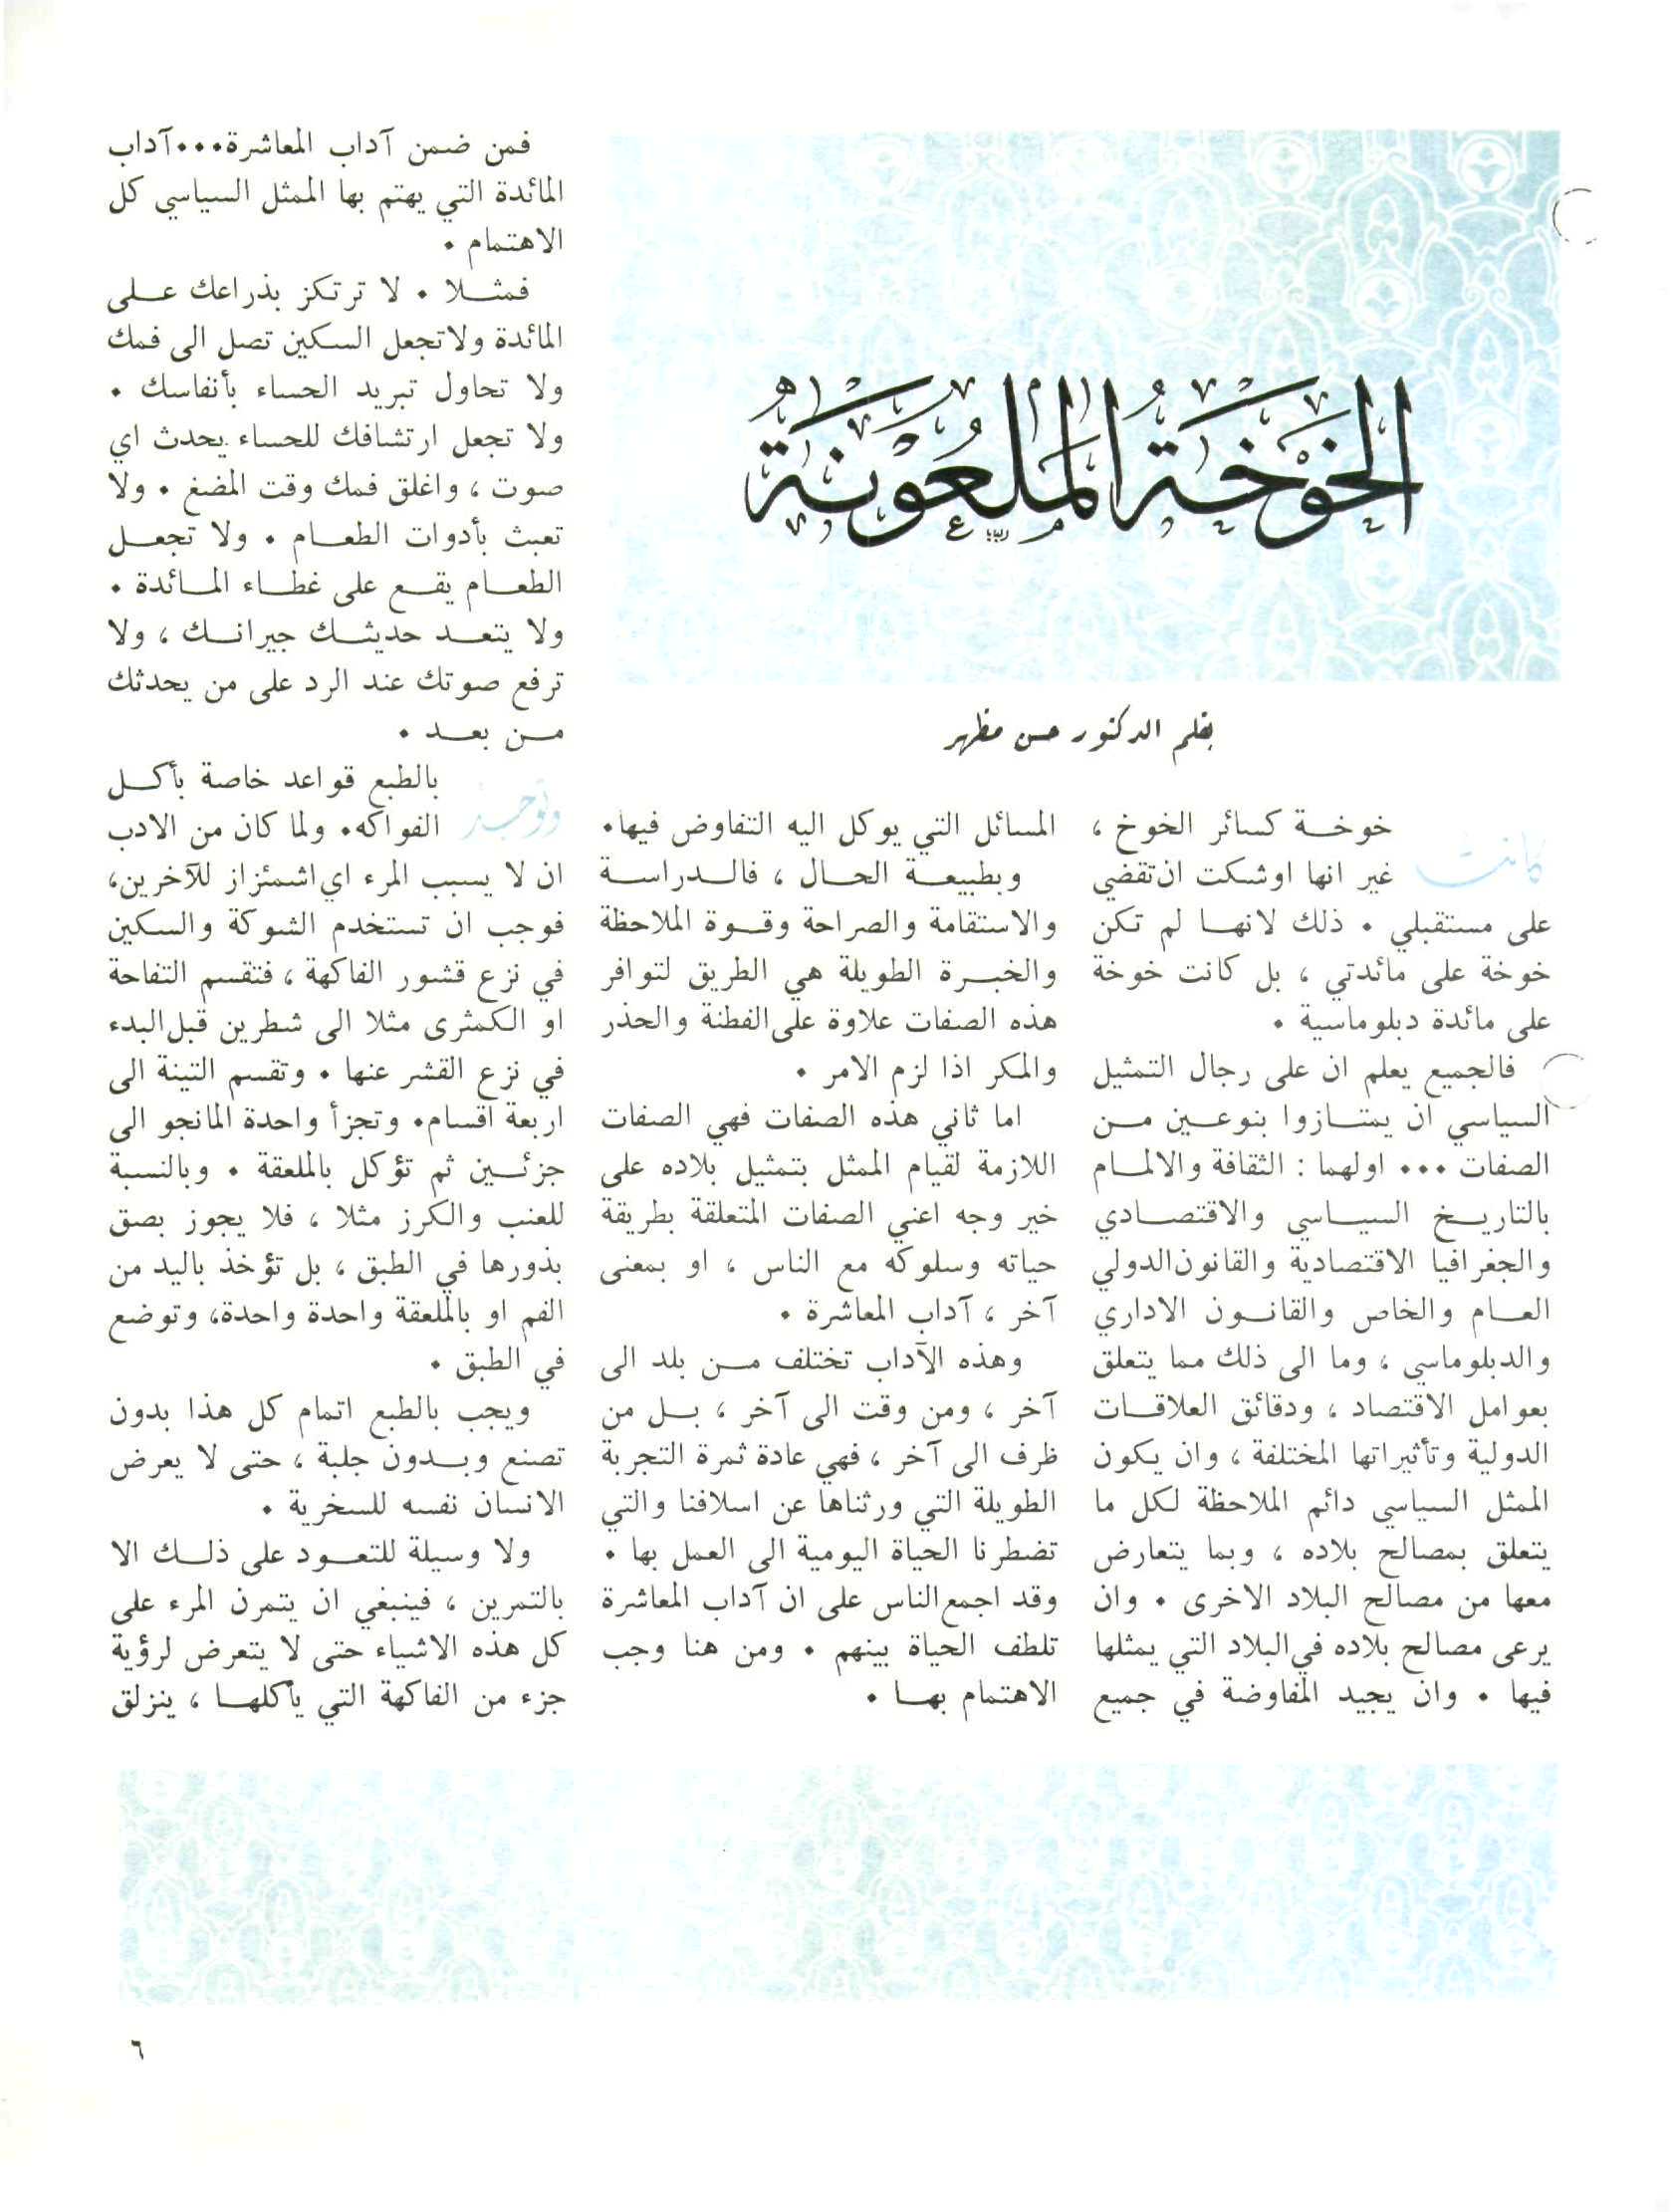 الخوخة الملعونة
بقلم الدكتور حسن مظهر
كانت خوخــة كسائر الخوخ ،
غير انها اوشكت ان تقضي
على مستقبلي . ذلك لانهــا لم تكن
خوخة على مائدتي ، بل كانت خوخة
على مائدة دبلوماسية .
فالجميع يعلم ان على رجال التمثيل
السياسي ان يمتــازوا بنوعــين مــن
الصفات ... اولهما : الثقافة والالمــام
بالتاريــخ السيــاسي والاقتصــادي
والجغرافيا الاقتصادية والقانون الدولي
العــام والخاص والقانــون الاداري
والدبلوماسي ، وما الى ذلك مما يتعلق
بعوامل الاقتصاد ، ودقائق العلاقــات
الدولية وتأثيراتها المختلفة ، وان يكون
الممثل السياسي دائم الملاحظة لكل ما
يتعلق بمصالح بلاده ، وبما يتعارض
معها من مصالح البلاد الاخرى . وان
يرعى مصالح بلاده في البلاد التي يمثلها
فيها . وان يجيد المفاوضة في جميع
المسائل التي يوكل اليه التفاوض فيها.
وبطبيعــة الحــال ، فالــدراســة
والاستقامة والصراحة وقــوة الملاحظة
والخبــرة الطويلة هي الطريق لتوافر
هذه الصفات علاوة على الفطنة والحذر
والمكر اذا لزم الامر .
اما ثاني هذه الصفات فهي الصفات
اللازمة لقيام الممثل بتمثيل بلاده على
خير وجه اعني الصفات المتعلقة بطريقة
حياته وسلوكه مع الناس ، او بمعنى
آخر ، آداب المعاشرة .
وهذه الآداب تختلف مــن بلد الى
آخر ، ومن وقت الى آخر ، بــل من
ظرف الى آخر ، فهي عادة ثمرة التجربة
الطويلة التي ورثناها عن اسلافنا والتي
تضطرنا الحياة اليومية الى العمل بها .
وقد اجمع الناس على ان آداب المعاشرة
تلطف الحياة بينهم . ومن هنا وجب
الاهتمام بهــا .
فمن ضمن آداب المعاشرة...آداب
المائدة التي يهتم بها الممثل السياسي كل
الاهتمام .
فمثــلا . لا ترتكز بذراعك علــى
المائدة ولا تجعل السكين تصل الى فمك
ولا تحاول تبريد الحساء بأنفاسك .
ولا تجعل ارتشافك للحساء يحدث اي
صوت ، واغلق فمك وقت المضغ . ولا
تعبث بأدوات الطعــام . ولا تجعــل
الطعــام يقــع على غطــاء المــائدة .
ولا يتعــد حديثــك جيرانــك ، ولا
ترفع صوتك عند الرد على من يحدثك
مــن بعــد .
وتوجد بالطبع قواعد خاصة بأكــل
الفواكه. ولما كان من الادب
ان لا يسبب المرء اي اشمئزاز للآخرين،
فوجب ان تستخدم الشوكة والسكين
في نزع قشور الفاكهة ، فتقسم التفاحة
او الكمثرى مثلا الى شطرين قبل البدء
في نزع القشر عنها . وتقسم التينة الى
اربعة اقسام. وتجزأ واحدة المانجو الى
جزئــين ثم تؤكل بالملعقة . وبالنسبة
للعنب والكرز مثلا ، فلا يجوز بصق
بذورها في الطبق ، بل تؤخذ باليد من
الفم او بالملعقة واحدة واحدة، وتوضع
في الطبق .
ويجب بالطبع اتمام كل هذا بدون
تصنع وبــدون جلبة ، حتى لا يعرض
الانسان نفسه للسخرية .
ولا وسيلة للتعــود على ذلــك الا
بالتمرين ، فينبغي ان يتمرن المرء على
كل هذه الاشياء حتى لا يتعرض لرؤية
جزء من الفاكهة التي يأكلهــا ، ينزلق
٦